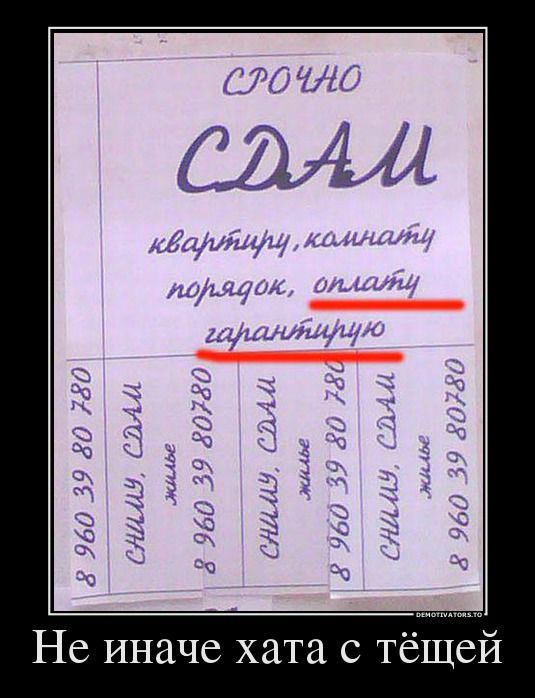 СРОЧНО
СДАМ
квартиру, комнату
порядок, оплату
гарантирую
8 960 39 80 780
СНИМУ, СДАМ
жилье
8 960 39 80780
СНИМУ, СДАМ
жилье
8 960 39 80 780
СНИМУ, СДАМ
жилье
8 960 39 80780
DEMOTIVATORS.TO
Не иначе хата с тёщей